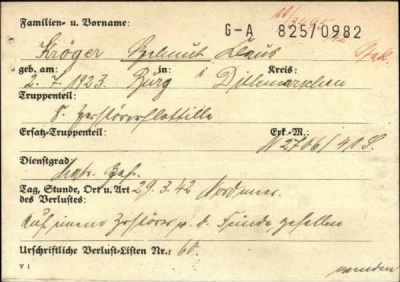 Familien- u. Vorname:
G-A 825/0982
Kröger Helmut Klaus
geb. am: in: Kreis:
2.7.1923 Burg i Dithmarschen
Truppenteil:
8. Zerstörerflottille
Ersatz-Truppenteil: Erk.-M.:
N 2706/40 S.
Dienstgrad
Matr. Gefr.
Tag, Stunde, Ort u. Art 29.3.42 Nordmeer.
des Verlustes:
Auf einem Zerstörer v. d. Feinde gefallen
Urschriftliche Verlust-Listen Nr.: 60.
V 1